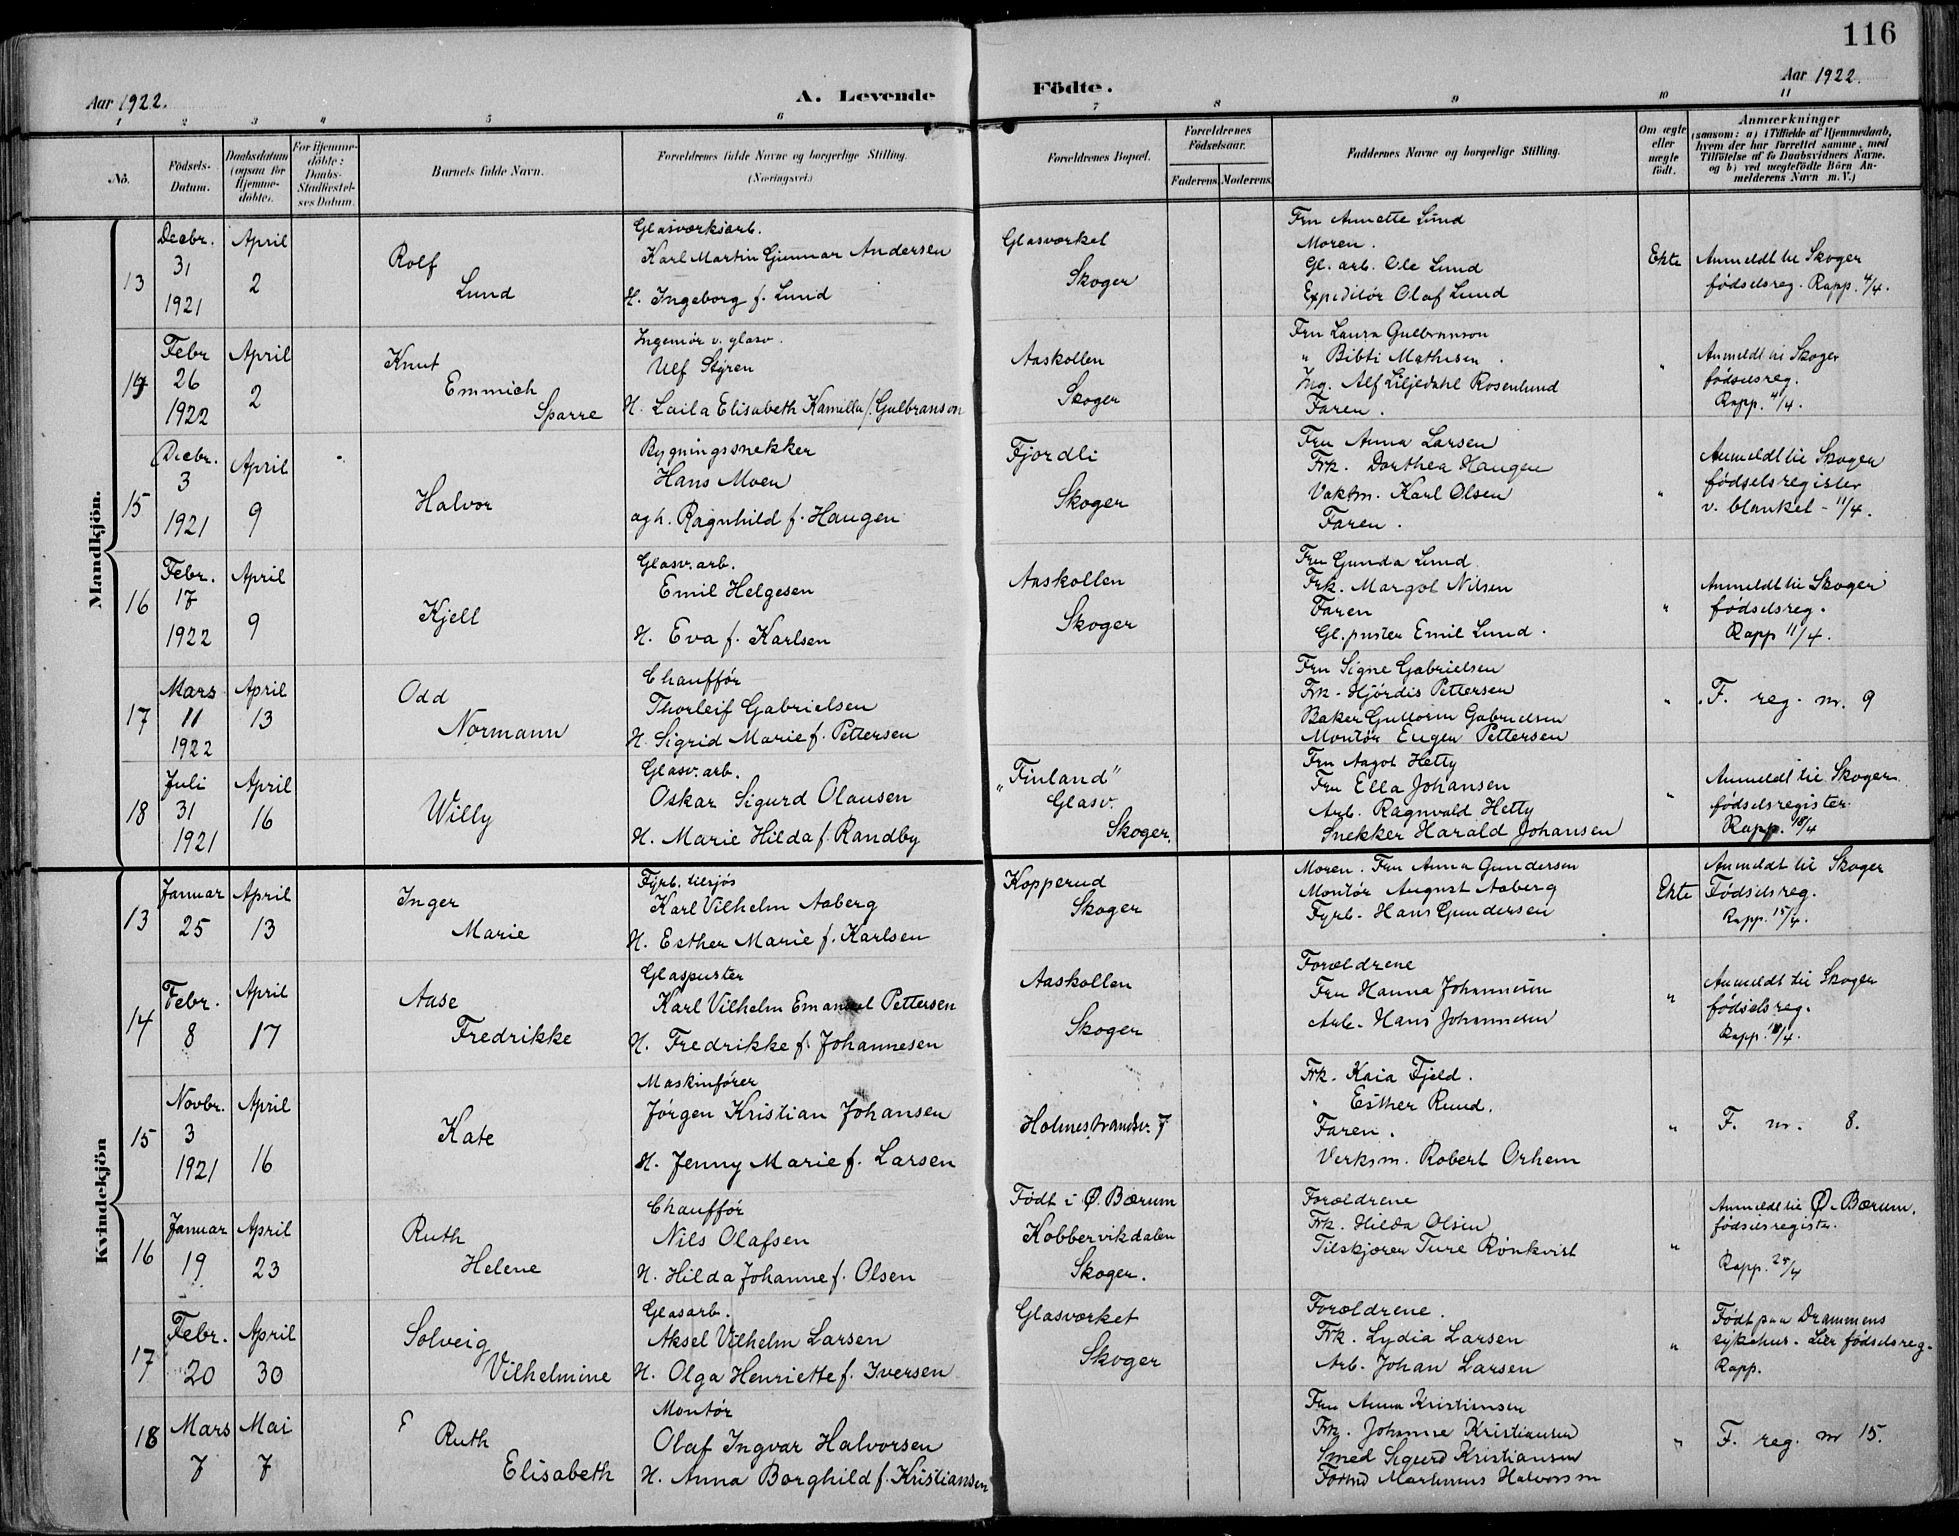 116
Aar 1922.
A. Levende
Födte.
Aar 1922.
1 2 3 4 5 6 7 8 9 10 11
No.
Födsels-
Datum.
Daabsdatum
(ogsaa for
Hjemme-
döbte).
For Hjemme-
döbte:
Daabs-
Stadfæstel-
ses Datum.
Barnets fulde Navn.
Forældrenes fulde Navne og borgerlige Stilling.
(Næringsvei.)
Forældrenes Bopæl.
Forældrenes
Födselsaar.
Faderens. Moderens.
Faddernes Navne og borgerlige Stilling.
Om ægte
eller
uægte
födt.
Anmærkninger
(saasom: a) i Tilfælde af Hjemmedaab,
hvem der har forrettet samme, med
Tilföielse af to Daabsvidners Navne.
og b) ved uægtefödte Börn An-
melderens Navn m. V.)
Mandkjön.
13
Decbr.
31
1921
April
2
Rolf
Lund
Glasværksarb.
Karl Martin Gunnar Andersen
H. Ingeborg f. Lund
Glasværket
Skoger
Fru Annette Lund
Moren.
Gl. arb. Ole Lund
Expeditør Olaf Lund
Ekte
Anmeldt til Skoger
fødselsreg. Rapp. 4/4.
14
Febr
26
1922
April
2
Knut
Emmich
Sparre
Ingeniør v. glasv.
Ulf Styren
H. Laila Elisabeth Kamilla f. Gulbranson
Aaskollen
Skoger
Fru Laura Gulbranson
" Bibti Mathisen.
Ing. Alf Liljedahl Rosenlund
Faren.
"
Anmeldt til Skoger
fødselsreg.
Rapp. 4/4.
15
Decbr.
3
1921
April
9
Halvor
Bygningssnekker
Hans Moen
agh. Ragnhild f. Haugen
Fjordli
Skoger
Fru Anna Larsen
Frk. Dorthea Haugen
Vaktm. Karl Olsen
Faren.
"
Anmeldt til Skoger
fødselsregister
v. blanket - 11/4.
16
Febr.
17
1922
April
9
Kjell
Glasv. arb.
Emil Helgesen
H. Eva f. Karlsen
Aaskollen
Skoger
Fru Gunda Lund
Frk. Margot Nilsen
Faren
Gl. puster Emil Lund.
"
Anmeldt til Skoger
fødselsreg.
Rapp 11/4.
17
Mars
11
1922
April
13
Odd
Normann
Chauffør
Thorleif Gabrielsen
H. Sigrid Marie f. Pettersen
Fru Signe Gabrielsen
Frk. Hjördis Pettersen
Baker Guttorm Gabrielsen
Montør Eugen Pettersen
"
F. reg. nr. 9
18
Juli
31
1921
April
16
Willy
Glasv. arb.
Oskar Sigurd Olausen
H. Marie Hilda f. Randby
"Finland"
Glasv.
Skoger.
Fru Aagot Hetty
Fru Ella Johansen
Arb. Ragnvald Hetty
Snekker Harald Johansen
"
Anmeldt til Skoger
fødselsregister.
Rapp. 18/4
Kvindekjön
13
Januar
25
April
13
Inger
Marie
Fyrb. tilsjøs
Karl Vilhelm Aaberg
H. Esther Marie f. Karlsen
Kopperud
Skoger
Moren. Fru Anna Gundersen
Montør August Aaberg
Fyrb. Hans Gundersen
Ekte
Anmeldt til Skoger
Fødselsreg.
Rapp. 15/4.
14
Febr.
8
April
17
Aase
Fredrikke
Glaspuster
Karl Vilhelm Emanuel Pettersen
H. Fredrikke f. Johannesen
Aaskollen
Skoger
Forældrene
Fru Hanna Johannesen
Arb. Hans Johannesen
"
Anmeldt til Skoger
fødselsreg.
Rapp. 18/4.
15
Novbr.
3
1921
April
16
Kate
Maskinfører
Jørgen Kristian Johansen
H. Jenny Marie f. Larsen
Holmestrandsv. 7
Frk. Kaia Fjeld.
" Esther Ruud.
Faren.
Verksm. Robert Orhem
"
F. nr. 8.
16
Januar
19
April
23
Ruth
Helene
Chauffør
Nils Olafsen
H. Hilda Johanne f. Olsen
Født i Ø. Bærum
Kobbervikdalen
Skoger.
Forældrene
Frk. Hilda Olsen
Tilskjærer Ture Rönkvist
"
Anmeldt til Ø. Bærum.
fødselsregister.
Rapp. 25/4
17
Febr.
20
April
30
Solveig
Vilhelmine
Glasarb.
Aksel Vilhelm Larsen
H. Olga Henriette f. Iversen
Glasværket
Skoger
Forældrene.
Frk. Lydia Larsen
Arb. Johan Larsen
"
Født paa Drammens
sykehus. Lier fødselsreg.
Rapp.
18
Mars
7
Mai
7
Ruth
Elisabeth
Montør
Olaf Ingvar Halvorsen
H. Anna Borghild f. Kristiansen
Fru Anna Kristiansen
Frk. Johanne Kristiansen
Smed Sigurd Kristiansen
Martinius Halvorsen
"
F. reg. nr 15.